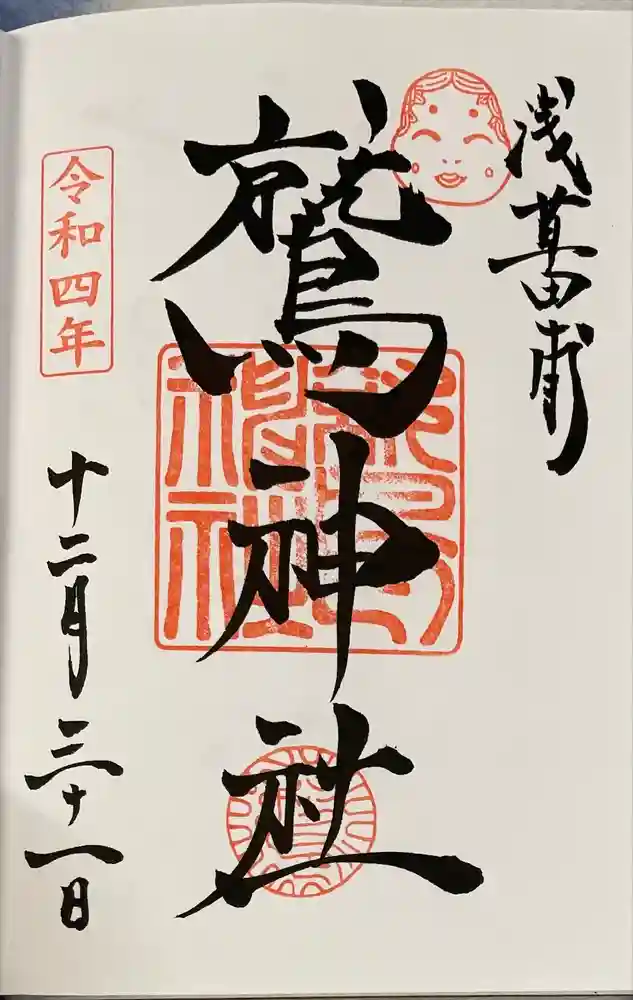 浅草田甫
鷲神社
令和四年
十二月三十一日